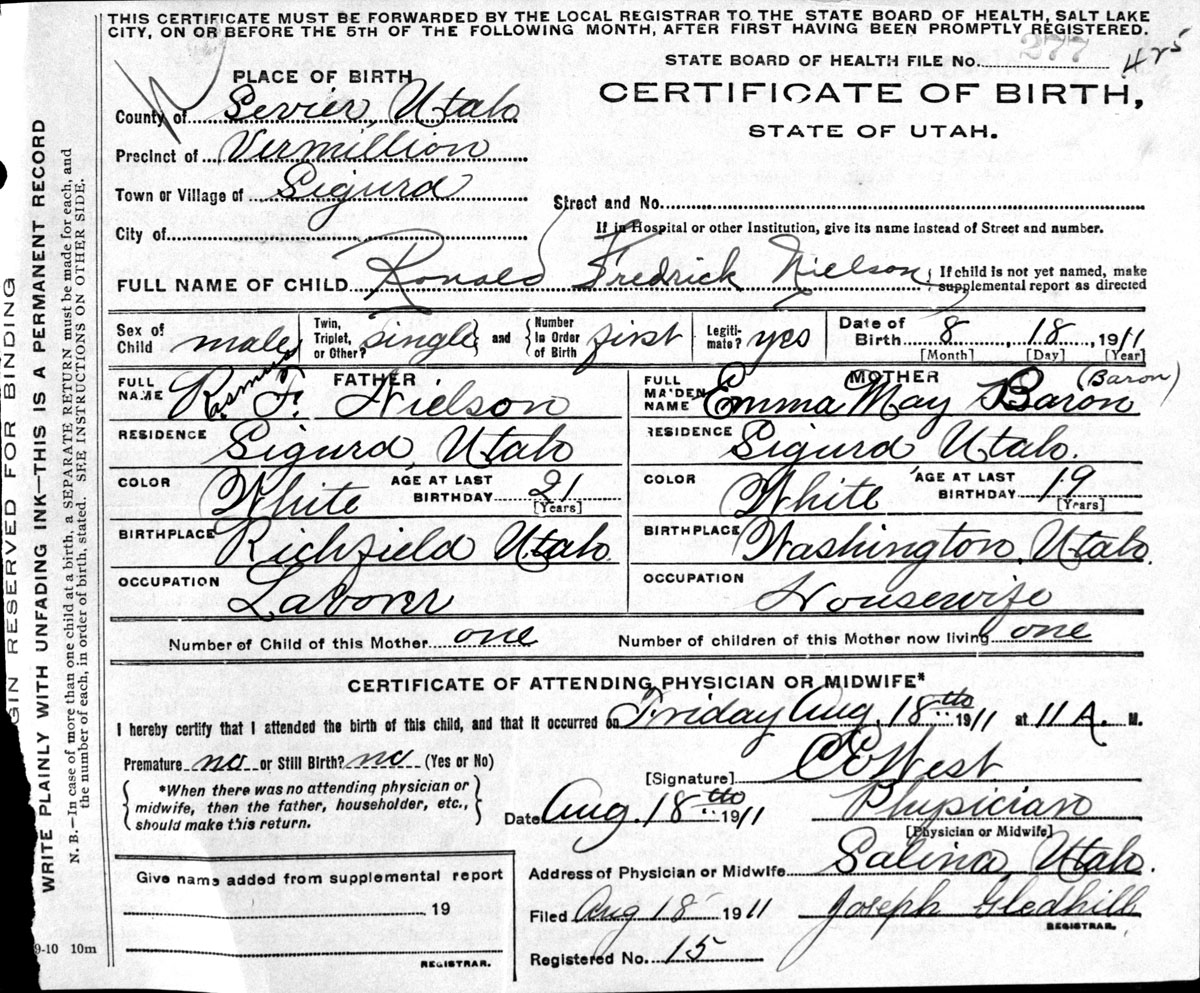 THIS CERTIFICATE MUST BE FORWARDED BY THE LOCAL REGISTRAR TO THE STATE BOARD OF HEALTH, SALT LAKE
CITY, ON OR BEFORE THE 5TH OF THE FOLLOWING MONTH, AFTER FIRST HAVING BEEN PROMPTLY REGISTERED.
STATE BOARD OF HEALTH FILE No. 277 425
PLACE OF BIRTH
CERTIFICATE OF BIRTH,
STATE OF UTAH.
County of Sevier, Utah
Precinct of Vermillion
Town or Village of Sigurd
Street and No.
City of
If in Hospital or other Institution, give its name instead of Street and number.
FULL NAME OF CHILD Ronald Fredrick Nielson { If child is not yet named, make
supplemental report as directed
Sex of Child male Twin, Triplet, or Other? single and Number In Order of Birth first Legiti-mate? yes Date of Birth 8 18, 1911
[Month] [Day] [Year]
FATHER
FULL NAME Rasmus F. Nielson
RESIDENCE Sigurd, Utah
COLOR White AGE AT LAST BIRTHDAY 21
[Years]
BIRTHPLACE Richfield Utah
OCCUPATION Laborer
MOTHER
FULL MAIDEN NAME Emma May Baron (Baron)
RESIDENCE Sigurd Utah.
COLOR White AGE AT LAST BIRTHDAY 19
[Years]
BIRTHPLACE Washington, Utah.
OCCUPATION Housewife
Number of Child of this Mother one Number of children of this Mother now living one
CERTIFICATE OF ATTENDING PHYSICIAN OR MIDWIFE*
I hereby certify that I attended the birth of this child, and that it occurred on Friday Aug, 18th 1911 at 11 A. M.
Premature no or Still Birth? no (Yes or No)
[Signature] West
*When there was no attending physician or
midwife, then the father, householder, etc.,
should make this return.
Date Aug. 18th 1911 Physician
[Physician or Midwife]
Address of Physician or Midwife Salina, Utah.
Give name added from supplemental report
19
REGISTRAR.
Filed Aug 18 1911 Joseph Gledhill
REGISTRAR.
Registered No. 15
9-10 10m
GIN RESERVED FOR BINDING
WRITE PLAINLY WITH UNFADING INK—THIS IS A PERMANENT RECORD
N. B.—In case of more than one child at a birth, a SEPARATE RETURN must be made for each, and
the number of each, in order of birth, stated. SEE INSTRUCTIONS ON OTHER SIDE.